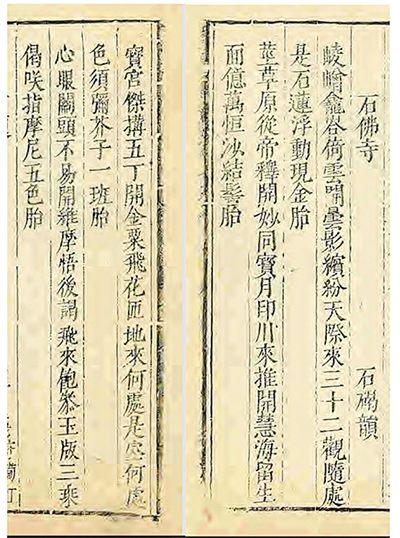 石佛寺 石礀韻
崚嶒龕倚雲曇影繽紛天際來三十二觀隨處
是石蓮浮動現金胎
莖草原從帝釋開妙同寶月印川來推開慧海留生
面億萬恒沙結髻胎
寶宮傑搆五丁開金粟飛花匝地來何處是何處
色須彌芥子一班胎
心眼關頭不易開維摩悟後謂飛來飽叅玉版三乘
偈咲指摩尼五色胎